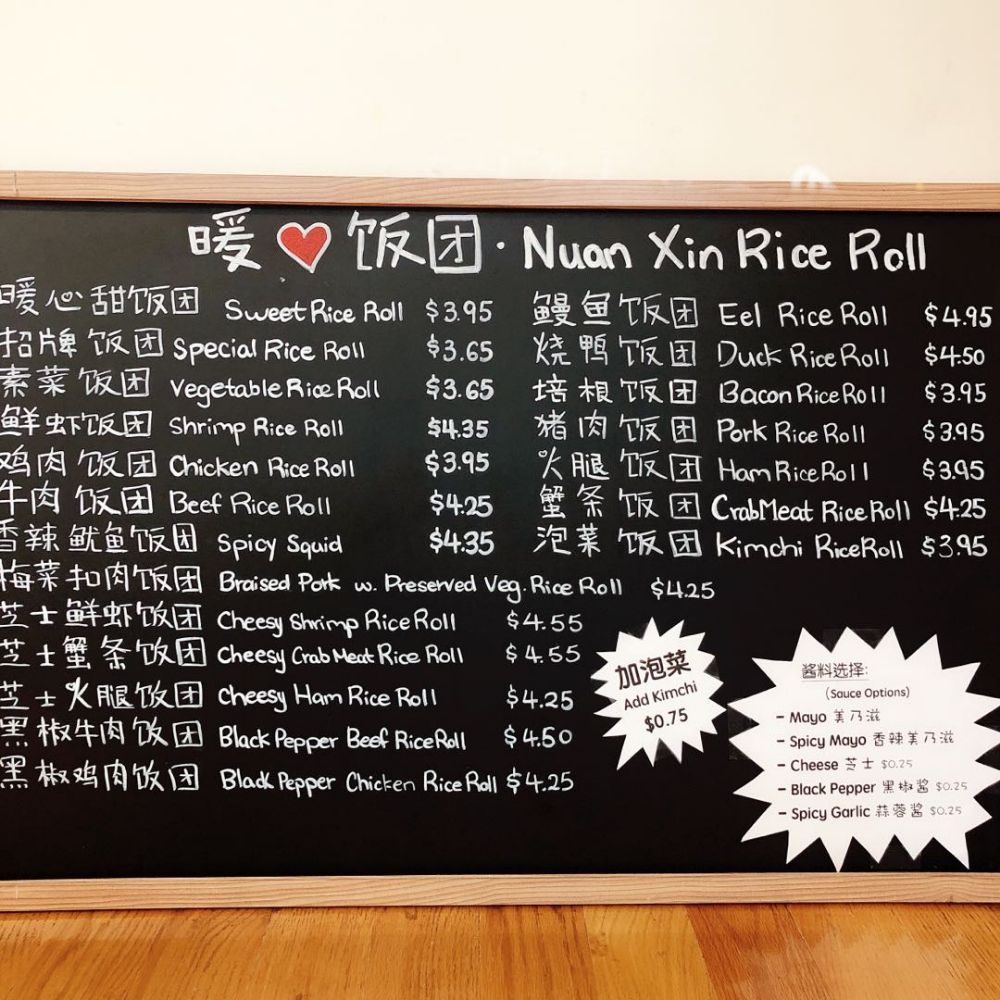 暖❤饭团·Nuan Xin Rice Roll
暖心甜饭团 Sweet Rice Roll $3.95
招牌饭团 Special Rice Roll $3.65
素菜饭团 Vegetable Rice Roll $3.65
鲜虾饭团 Shrimp Rice Roll $4.35
鸡肉饭团 Chicken Rice Roll $3.95
牛肉饭团 Beef Rice Roll $4.25
香辣鱿鱼饭团 Spicy Squid $4.35
梅菜扣肉饭团 Braised Pork w. Preserved Veg. Rice Roll $4.25
芝士鲜虾饭团 Cheesy Shrimp Rice Roll $4.55
芝士蟹条饭团 Cheesy Crab Meat Rice Roll $4.55
芝士火腿饭团 Cheesy Ham Rice Roll $4.25
黑椒牛肉饭团 Black Pepper Beef Rice Roll $4.50
黑椒鸡肉饭团 Black Pepper Chicken Rice Roll $4.25
鳗鱼饭团 Eel Rice Roll $4.95
烧鸭饭团 Duck Rice Roll $4.50
培根饭团 Bacon Rice Roll $3.95
猪肉饭团 Pork Rice Roll $3.95
火腿饭团 Ham Rice Roll $3.95
蟹条饭团 Crab Meat Rice Roll $4.25
泡菜饭团 Kimchi Rice Roll $3.95
加泡菜
Add Kimchi
$0.75
酱料选择:
(Sauce Options)
- Mayo 美乃滋
- Spicy Mayo 香辣美乃滋
- Cheese 芝士 $0.25
- Black Pepper 黑椒酱 $0.25
- Spicy Garlic 蒜蓉酱 $0.25